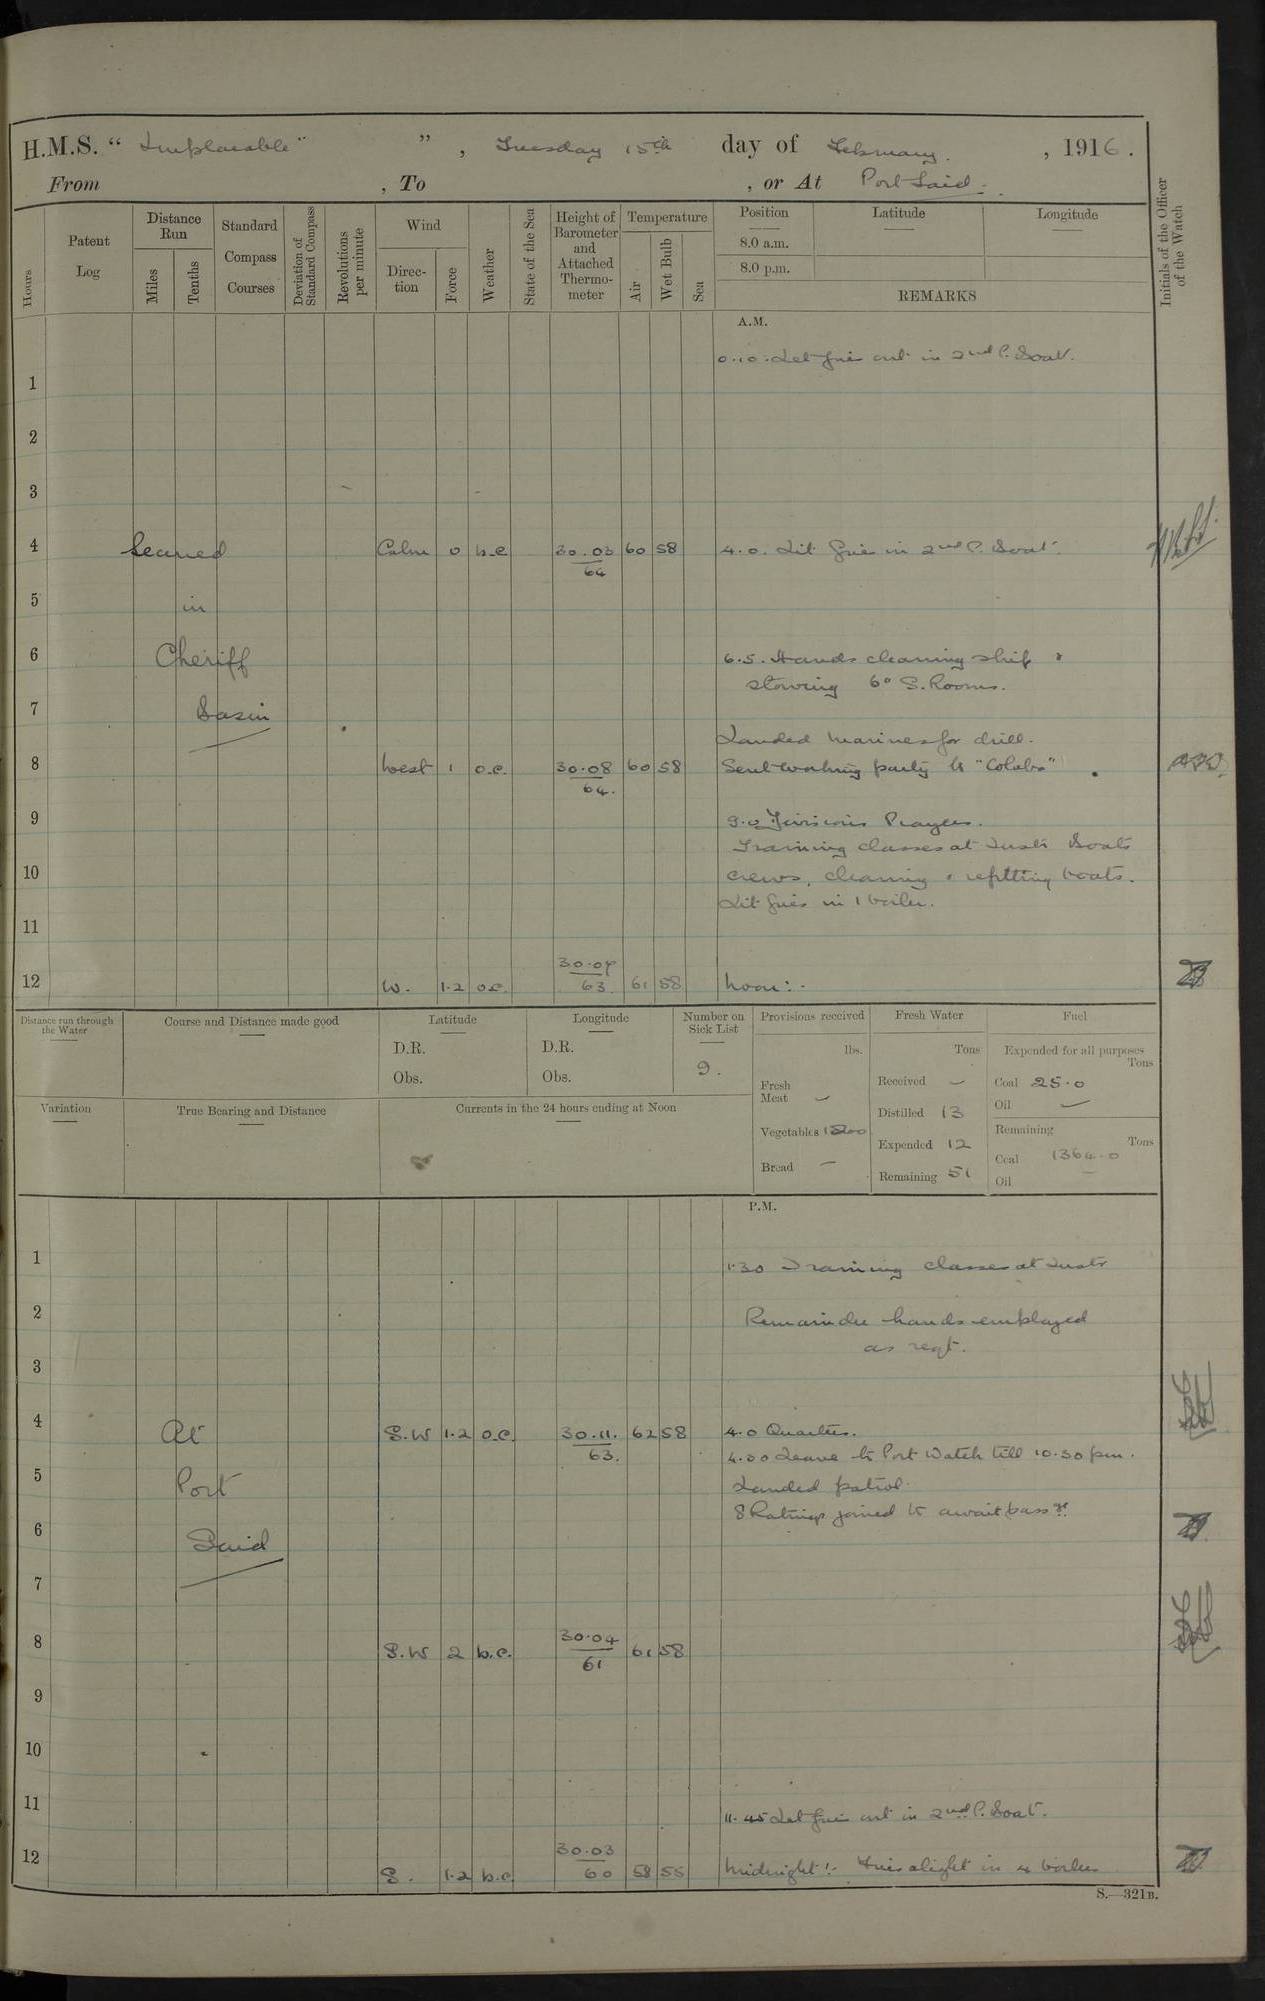 H.M.S. " Implacable " , Tuesday 15th day of February. , 1916.
From , To , or At Port Said.
Hours
Patent Log
Distance Run
Miles
Tenths
Standard Compass Courses
Deviation of Standard Compass
Revolutions per minute
Wind
Direc-tion
Force
Weather
State of the Sea
Height of Barometer and Attached Thermo-meter
Temperature
Air
Wet Bulb
Sea
Position
8.0 a.m.
8.0 p.m.
Latitude
Longitude
REMARKS
Initials of the Officer of the Watch
A.M.
0.10. Let fires out in 2nd P. Boat.
1
2
3
4 Secured Calm 0 b.c 30.03 60 58 4.0. Lit fires in 2nd P. Boat.
64
5 in
6 Cheriff 6.5. Hands cleaning ship &
stowing 6" S. Rooms.
7 Basin
Landed Marines for drill.
8 West 1 o.c. 30.08 60 58 Sent working party to "Colaba"
64.
9 9.0 Divisions Prayers.
Training classes at Instr Boats
10 crews, cleaning & refitting boats.
Lit fires in 1 boiler.
11
30.07
12 W. 1.2 o.c. 63. 61 58 Noon:-
Distance run through the Water
Course and Distance made good
Latitude
D.R.
Obs.
Longitude
D.R.
Obs.
Number on Sick List
9.
Provisions received
lbs.
Fresh Meat –
Vegetables 1200
Bread –
Fresh Water
Tons
Received –
Distilled 13
Expended 12
Remaining 51
Fuel
Expended for all purposes
Tons
Coal 25.0
Oil –
Remaining
Tons
Coal 1364.0
Oil –
Variation
True Bearing and Distance
Currents in the 24 hours ending at Noon
P.M.
1 1.30 Training classes at Instr
2 Remainder hands employed
as reqt.
3
4 At S.W 1.2 o.c. 30.11. 62 58 4.0 Quarters.
63.
4.30 Leave to Port Watch till 10.30 pm.
5 Port Landed patrol.
8 Ratings joined to await pass ge.
6 Said
7
8 S.W 2 b.c. 30.04 61 58
61
9
10
11 11.45 Let fires out in 2nd P. Boat.
30.03
12 S. 1.2 b.c. 60 58 55 Midnight:- Fires alight in 4 boilers
S.—321B.